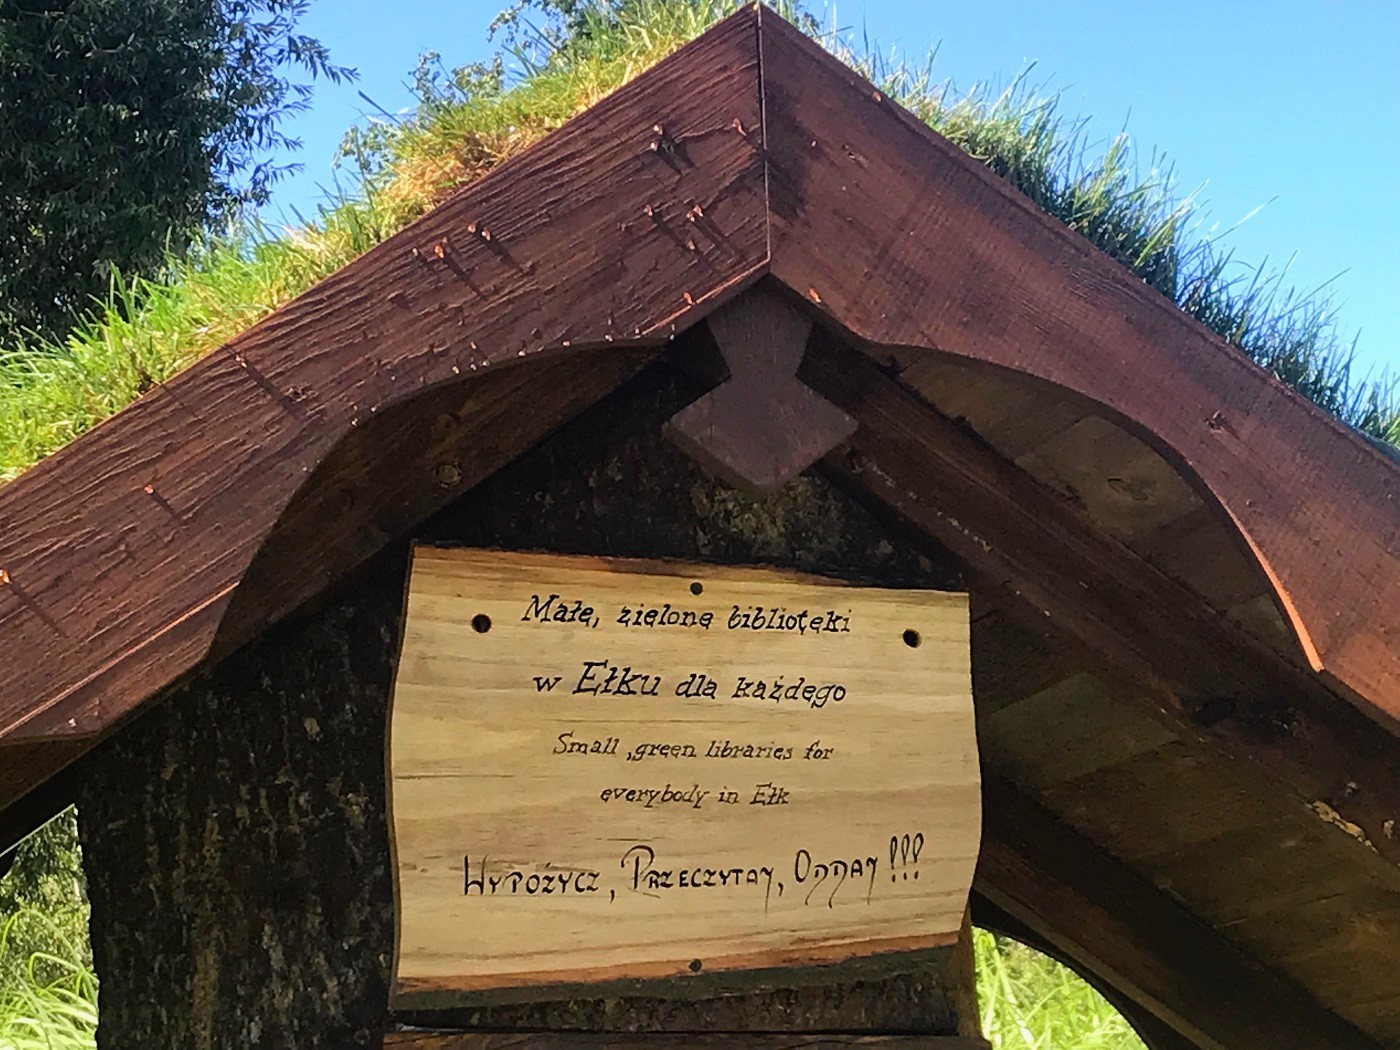 Małe, zielone biblioteki
w Ełku dla każdego
Small ,green libraries for
everybody in Ełk
WYPOŻYCZ, PRZECZYTAJ, ODDAJ !!!